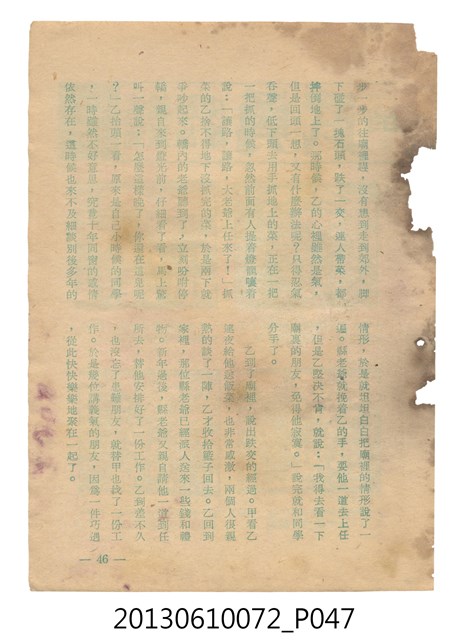 步一步的往廟裡跑，沒有想到走到郊外，脚
下碰了一塊石頭，跌了一交，連人帶菜，都
摔倒地上了。那時候，乙的心裡雖然是氣，
但是回頭一想，又有什麼辦法呢？只得忍氣
吞聲，低下頭去用手抓地上的菜，正在一把
一把抓的時候，忽然前面有人提着燈籠嚷着
說：「讓路，讓路，大老爺上任來了！」抓
菜的乙捨不得地下沒抓完的菜，於是兩下就
爭吵起來。轎內的老爺聽到了，立刻吩咐停
轎，親自來到燈光前，仔細看了看，馬上驚
叫一聲說：「怎麼這樣晚了，你還在這兒呢
？」乙抬頭一看，原來是自己小時候的同學
，一時雖然不好意思，究竟十年同窗的感情
依然存在，這時候也來不及細談別後多年的
情形，於是就坦坦白白把廟裡的情形說了一
遍。縣老爺就挽着乙的手，要他一道去上任
，但是乙堅決不肯，就說：「我得去看一下
廟裏的朋友，免得他寂寞。」說完就和同學
分手了。
乙到了廟裡，說出跌交的經過。甲看乙
連夜給他送飯菜，也非常感激，兩個人很親
熱的談了一陣，乙才收拾籃子回去。乙回到
家裡，那位縣老爺已經派人送來一些錢和禮
物。新年過後，縣老爺又親自請他一道到任
所去，替他安排好了一份工作。乙到差不久
，也沒忘了患難朋友，就替甲也找了一份工
作。於是幾位講義氣的朋友，因爲一件巧遇
，從此快快樂樂地聚在一起了。
— 46 —
20130610072_P047